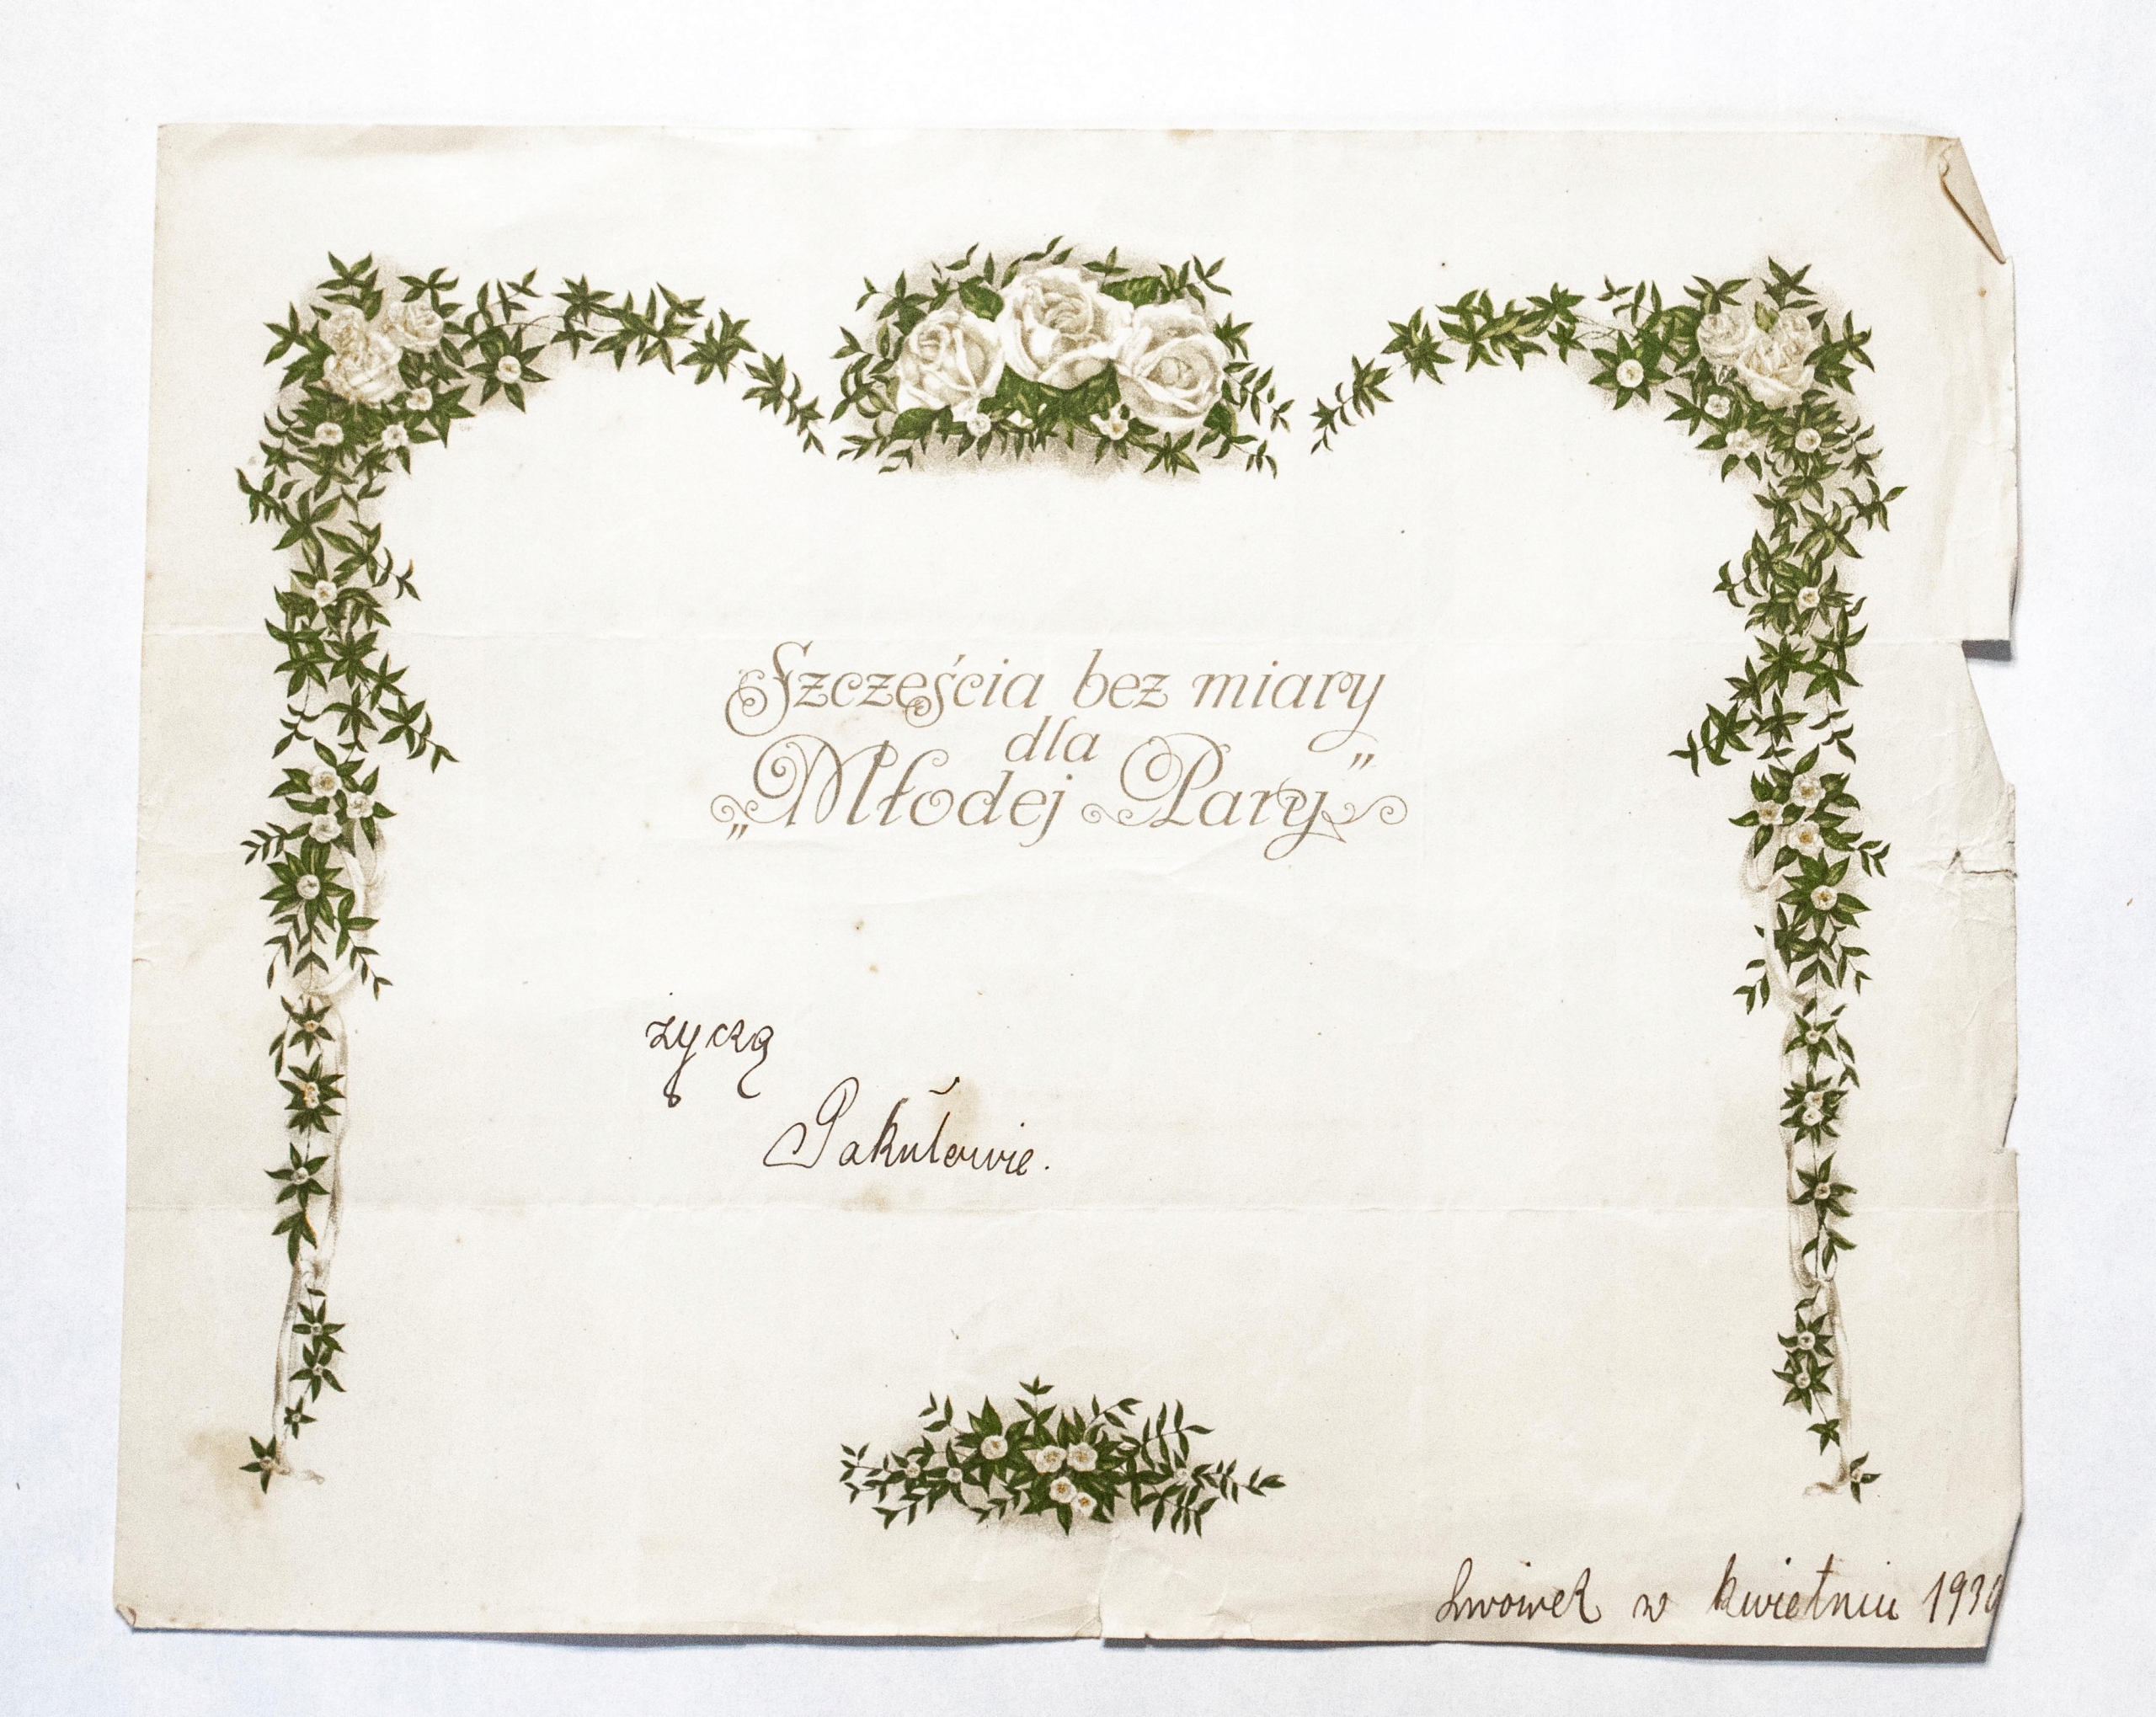 Szczęścia bez miary
dla
„Młodej Pary”
życzą
Pakułowie.
Lwówek w kwietniu 1930